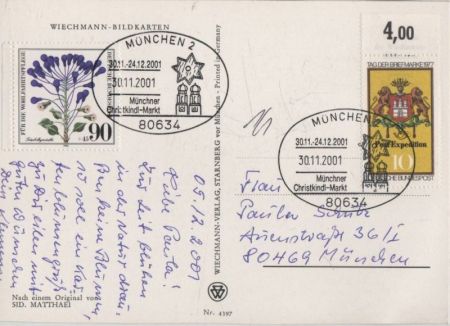 WIECHMANN-BILDKARTEN
FÜR DIE WOHLFAHRTSPFLEGE
DEUTSCHE BUNDESPOST
90
MÜNCHEN 2
30.11.-24.12.2001
30.11.2001
Münchner
Christkindl-Markt
80634
4,00
TAG DER BRIEFMARKE 1977
Post Expedition
10
DEUTSCHE BUNDESPOST
MÜNCHEN 2
30.11.-24.12.2001
30.11.2001
Münchner
Christkindl-Markt
80634
WIECHMANN-VERLAG STARNBERG vor München - Printed in Germany
05.12.2001
Liebe Paula!
Zur Zeit blühen
in der Natur drau-
ßen keine Blumen,
so soll ein Kar-
tenblumengruß
zu Dir eilen mit
guten Wünschen
Dein
Frau
Paula
80469 München
Nach einem Original von
SID. MATTHAEI
Nr. 4397